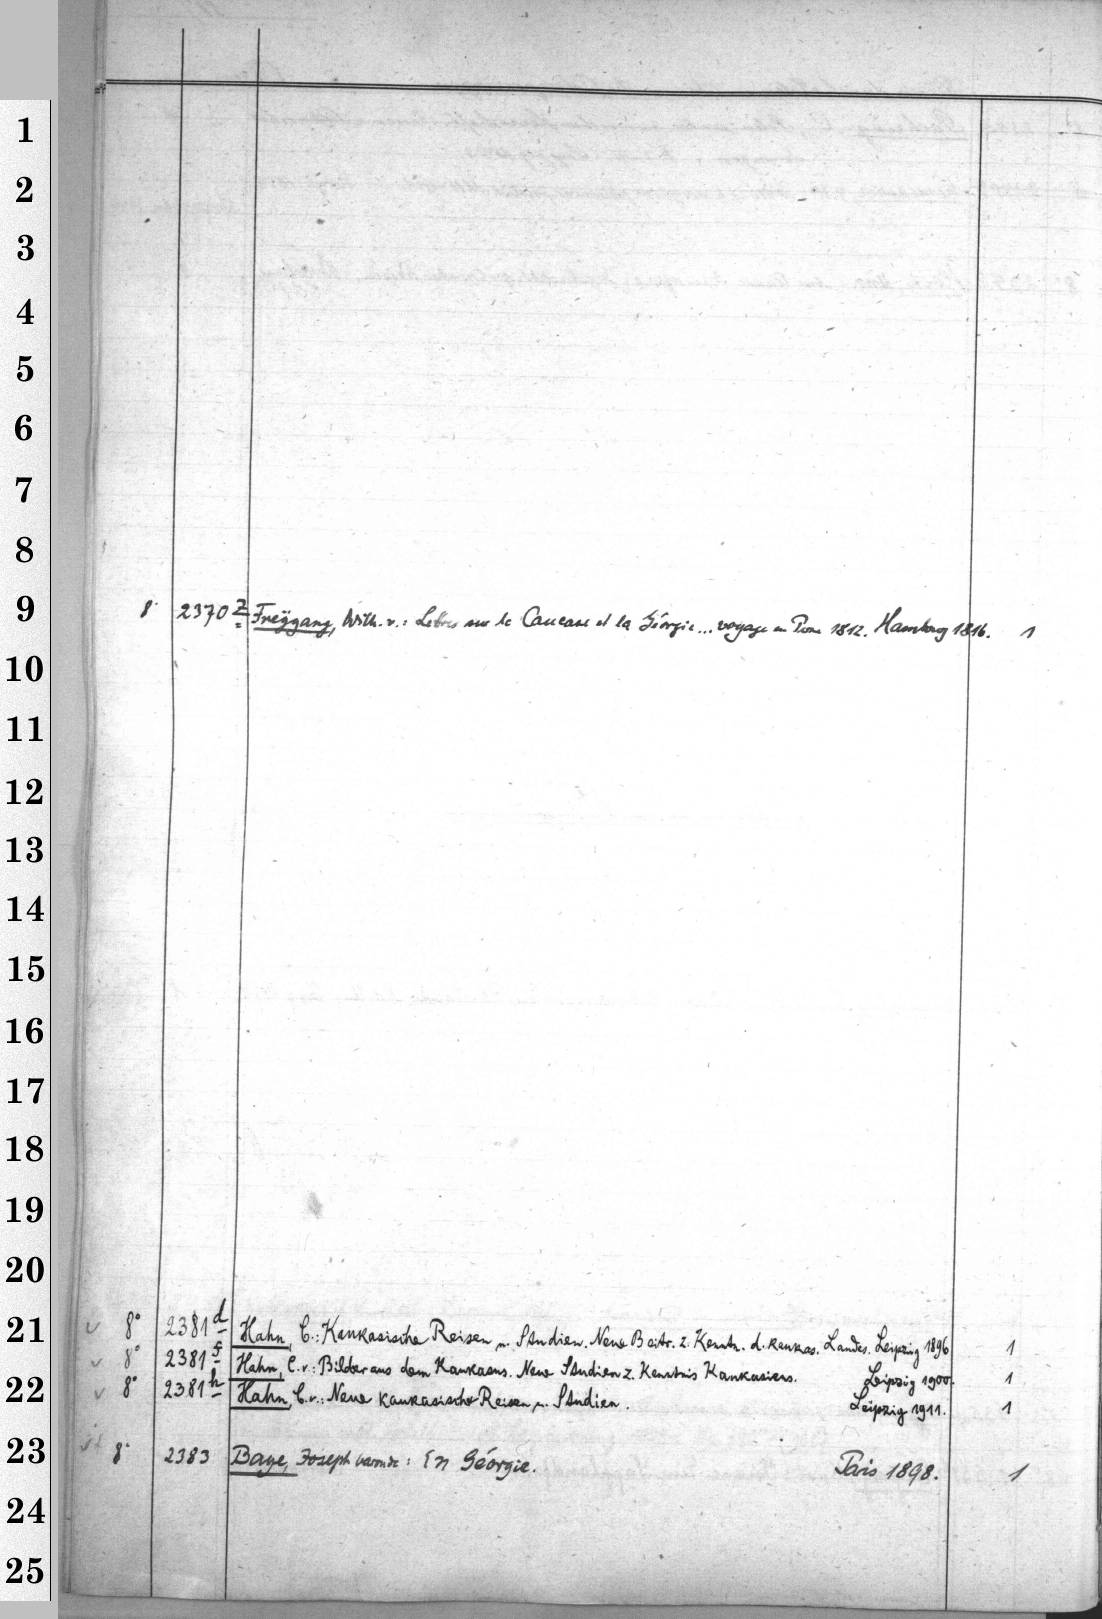 1
2
3
4
5
6
7
8
9
8° 2370 z Freÿgang, Wilh. v.: Lettres sur le Caucase et la Géorgie... voyage en Perse 1812. Hambourg 1816. 1
10
11
12
13
14
15
16
17
18
19
20
21
8° 2381 d Hahn, C.: Kaukasische Reisen u. Studien. Neue Beitr. z. Kenntn. d. kaukas. Landes. Leipzig 1896 1
8° 2381 f Hahn, C. v.: Bilder aus dem Kaukasus. Neue Studien z. Kenntnis Kaukasiens. Leipzig 1900. 1
22
8° 2381 h Hahn, C. v.: Neue kaukasische Reisen u. Studien. Leipzig 1911. 1
23
8° 2383 Baye, Joseph baron de: En Géorgie. Paris 1898. 1
24
25